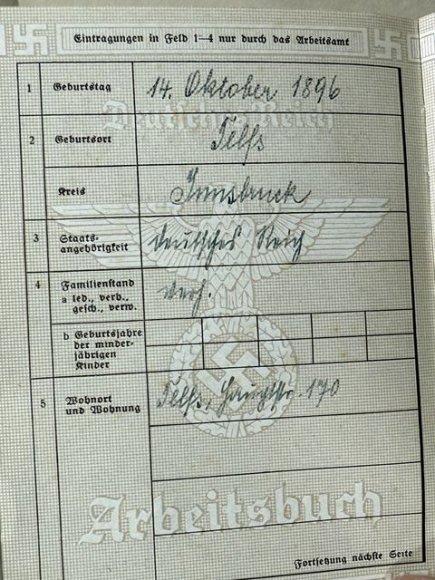 Eintragungen in Feld 1–4 nur durch das Arbeitsamt
1 Geburtstag 14. Oktober 1896
Deutsches Reich
2 Geburtsort Telfs
Kreis Innsbruck
3 Staats-
angehörigkeit deutsches Reich
4 Familienstand
a led., verh.,
gesch., verw. verh.
b Geburtsjahre
der minder-
jährigen
Kinder
5 Wohnort
und Wohnung Telfs, Hauptstr. 170
Arbeitsbuch
Fortsetzung nächste Seite